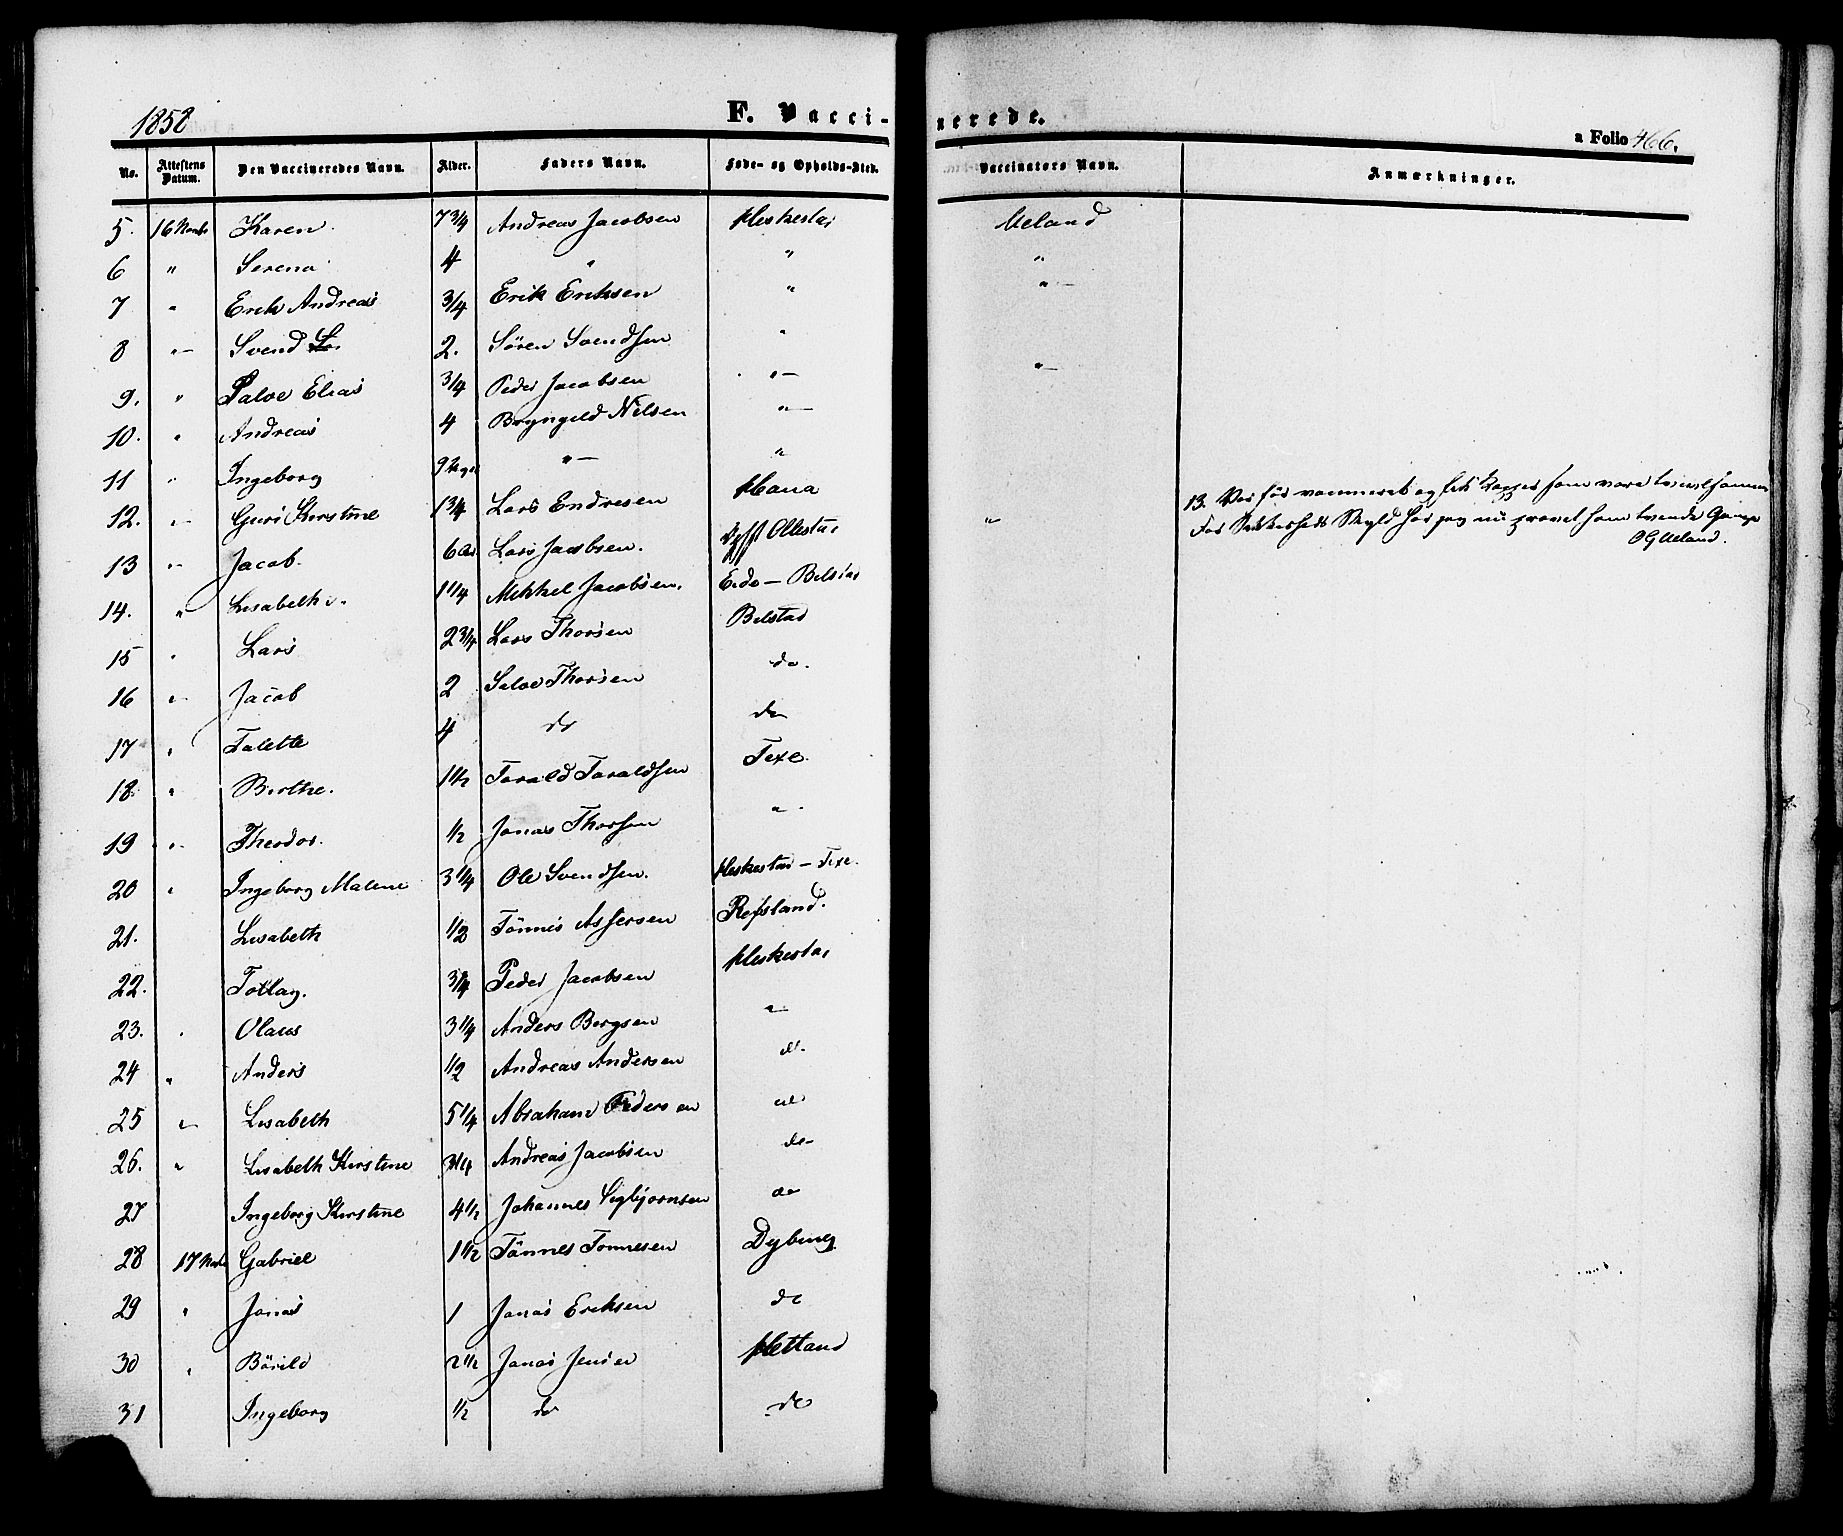 1858 F. Vaccinerede. a Folio 466.
No. Attestens Datum. Den Vaccineredes Navn. Alder. Faders Navn. Føde- og Opholds-Sted. Vaccinators Navn. Anmærkninger.
5. 16 Novbr Karen. 7 3/4 Andreas Jacobsen Heskestad Ueland
6 " Serena 4 " " "
7 " Erik Andreas 3/4 Erik Eriksen " "
8 " Svend 2. Sören Svendsen "
9. " Salve Elias 3/4 Peder Jacobsen " "
10. " Andreas 4 Bryngeld Nilsen "
11 " Ingeborg 9 " "
12. " Guri Kirstine 1 3/4 Lars Endresen Hana "
13. Var før vaccineret og
For Sikkerheds Skyld har jeg nu
OGUeland.
13 " Jacob. 6 Lars Jacobsen.
14. " Lisabeth 1 1/4 Mikkel Jacobsen. Eide - Bilstad
15 " Lars 2 3/4 Lars Thorsen Bilstad
16 " Jacob 2 Salve Thorsen do.
17 " Talette 4 do do
18. " Berthe. 1 1/2 Tarald Taraldsen Texe.
19 " Theodor. 1/2 Jonas Thorsen "
20 " Ingeborg Malene 3 1/4 Ole Svendsen. Heskestad - Texe.
21. Lisabeth 1/2 Tönnes Assersen Refsland.
22. Tollag. 3/4 Peder Jacobsen Heskestad
23. " Olaus 3 1/4 Anders Bergsen "
24 " Anders 1/2 Andreas Andersen do
25 " Lisabeth 5 1/4 Abraham Pedersen do
26. " Lisabeth Kirstine 3/4 Andreas Jacobsen do
27 Ingeborg Kirstine 4 1/2 Johannes Sigbjörnsen do
28 17 Novbr Gabriel 1 1/2 Tönnes Tönnesen Dybing
29 " Jonas 1 Jonas Eriksen do
30 " Börild 2 1/2 Jonas Jensen Hetland
31 Ingeborg 1/2 do do